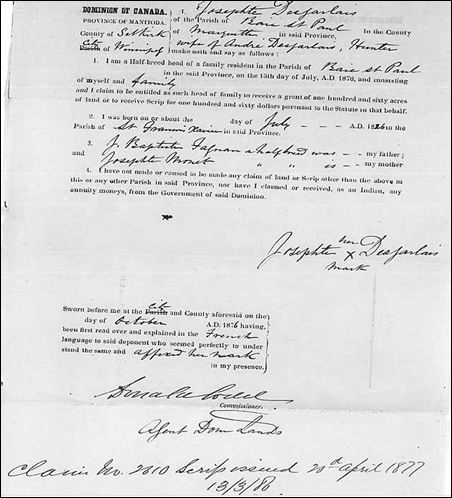 DOMINION OF CANADA.
PROVINCE OF MANITOBA.
County of Selkirk
City
Parish of Winnipeg
I, Josephte Desjarlais
of the Parish of Baie St Paul
of Marquette in said Province, in the County
wife of André Desjarlais, Hunter
make oath and say as follows :
1. I am a Half-breed head of a family resident in the Parish of Baie St Paul
in the said Province, on the 15th day of July, A.D. 1870, and consisting
of myself and family
and I claim to be entitled as such head of family to receive a grant of one hundred and sixty acres
of land or to receive Scrip for one hundred and sixty dollars pursuant to the Statute in that behalf.
2. I was born on or about the day of July A.D. 1826 in the
Parish of St Francois Xavier in said Province.
3. J. Baptiste a halfbred was my father;
and Josephte " " is my mother
4. I have not made or caused to be made any claim of land or Scrip other than the above in
this or any other Parish in said Province, nor have I claimed or received, as an Indian, any
annuity moneys, from the Government of said Dominion.
Josephte her x Desjarlais
mark
Sworn before me at the City Parish and County aforesaid on the
day of October A.D. 1876 having,
been first read over and explained in the French
language to said deponent who seemed perfectly to under
stand the same and affixed her mark
in my presence.
Commissioner.
Agent Dom Lands
Claim No. 2310 Scrip issued 20th April 1877
13/3/80